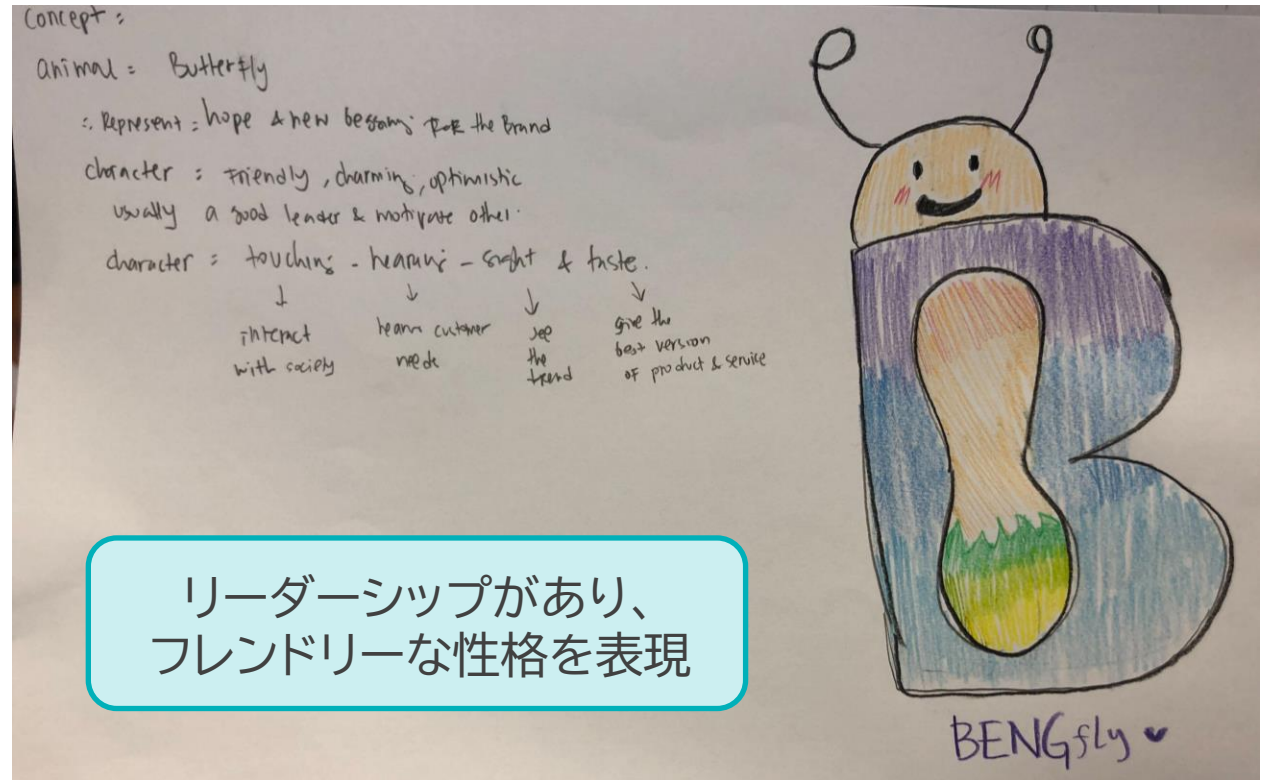 Concept :
animal = Butterfly
∴ Represent = hope & new for the Brand
character : Friendly, charming, optimistic
usually a good leader & motivate other.
character : touching - hearing - sight & taste.
↓ ↓ ↓ ↓
interact
with society
hearn cutomer
need
see
the
trend
give the
best version
of product & service
リーダーシップがあり、
フレンドリーな性格を表現
B
BENGfly